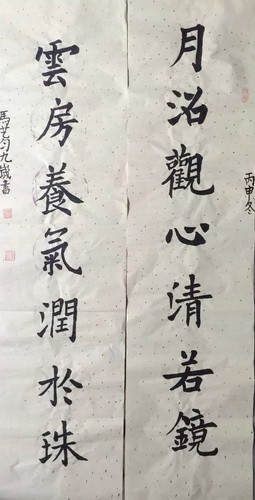 月沼觀心清若鏡
丙申冬
雲房養氣潤於珠
馬芝勻九歲書